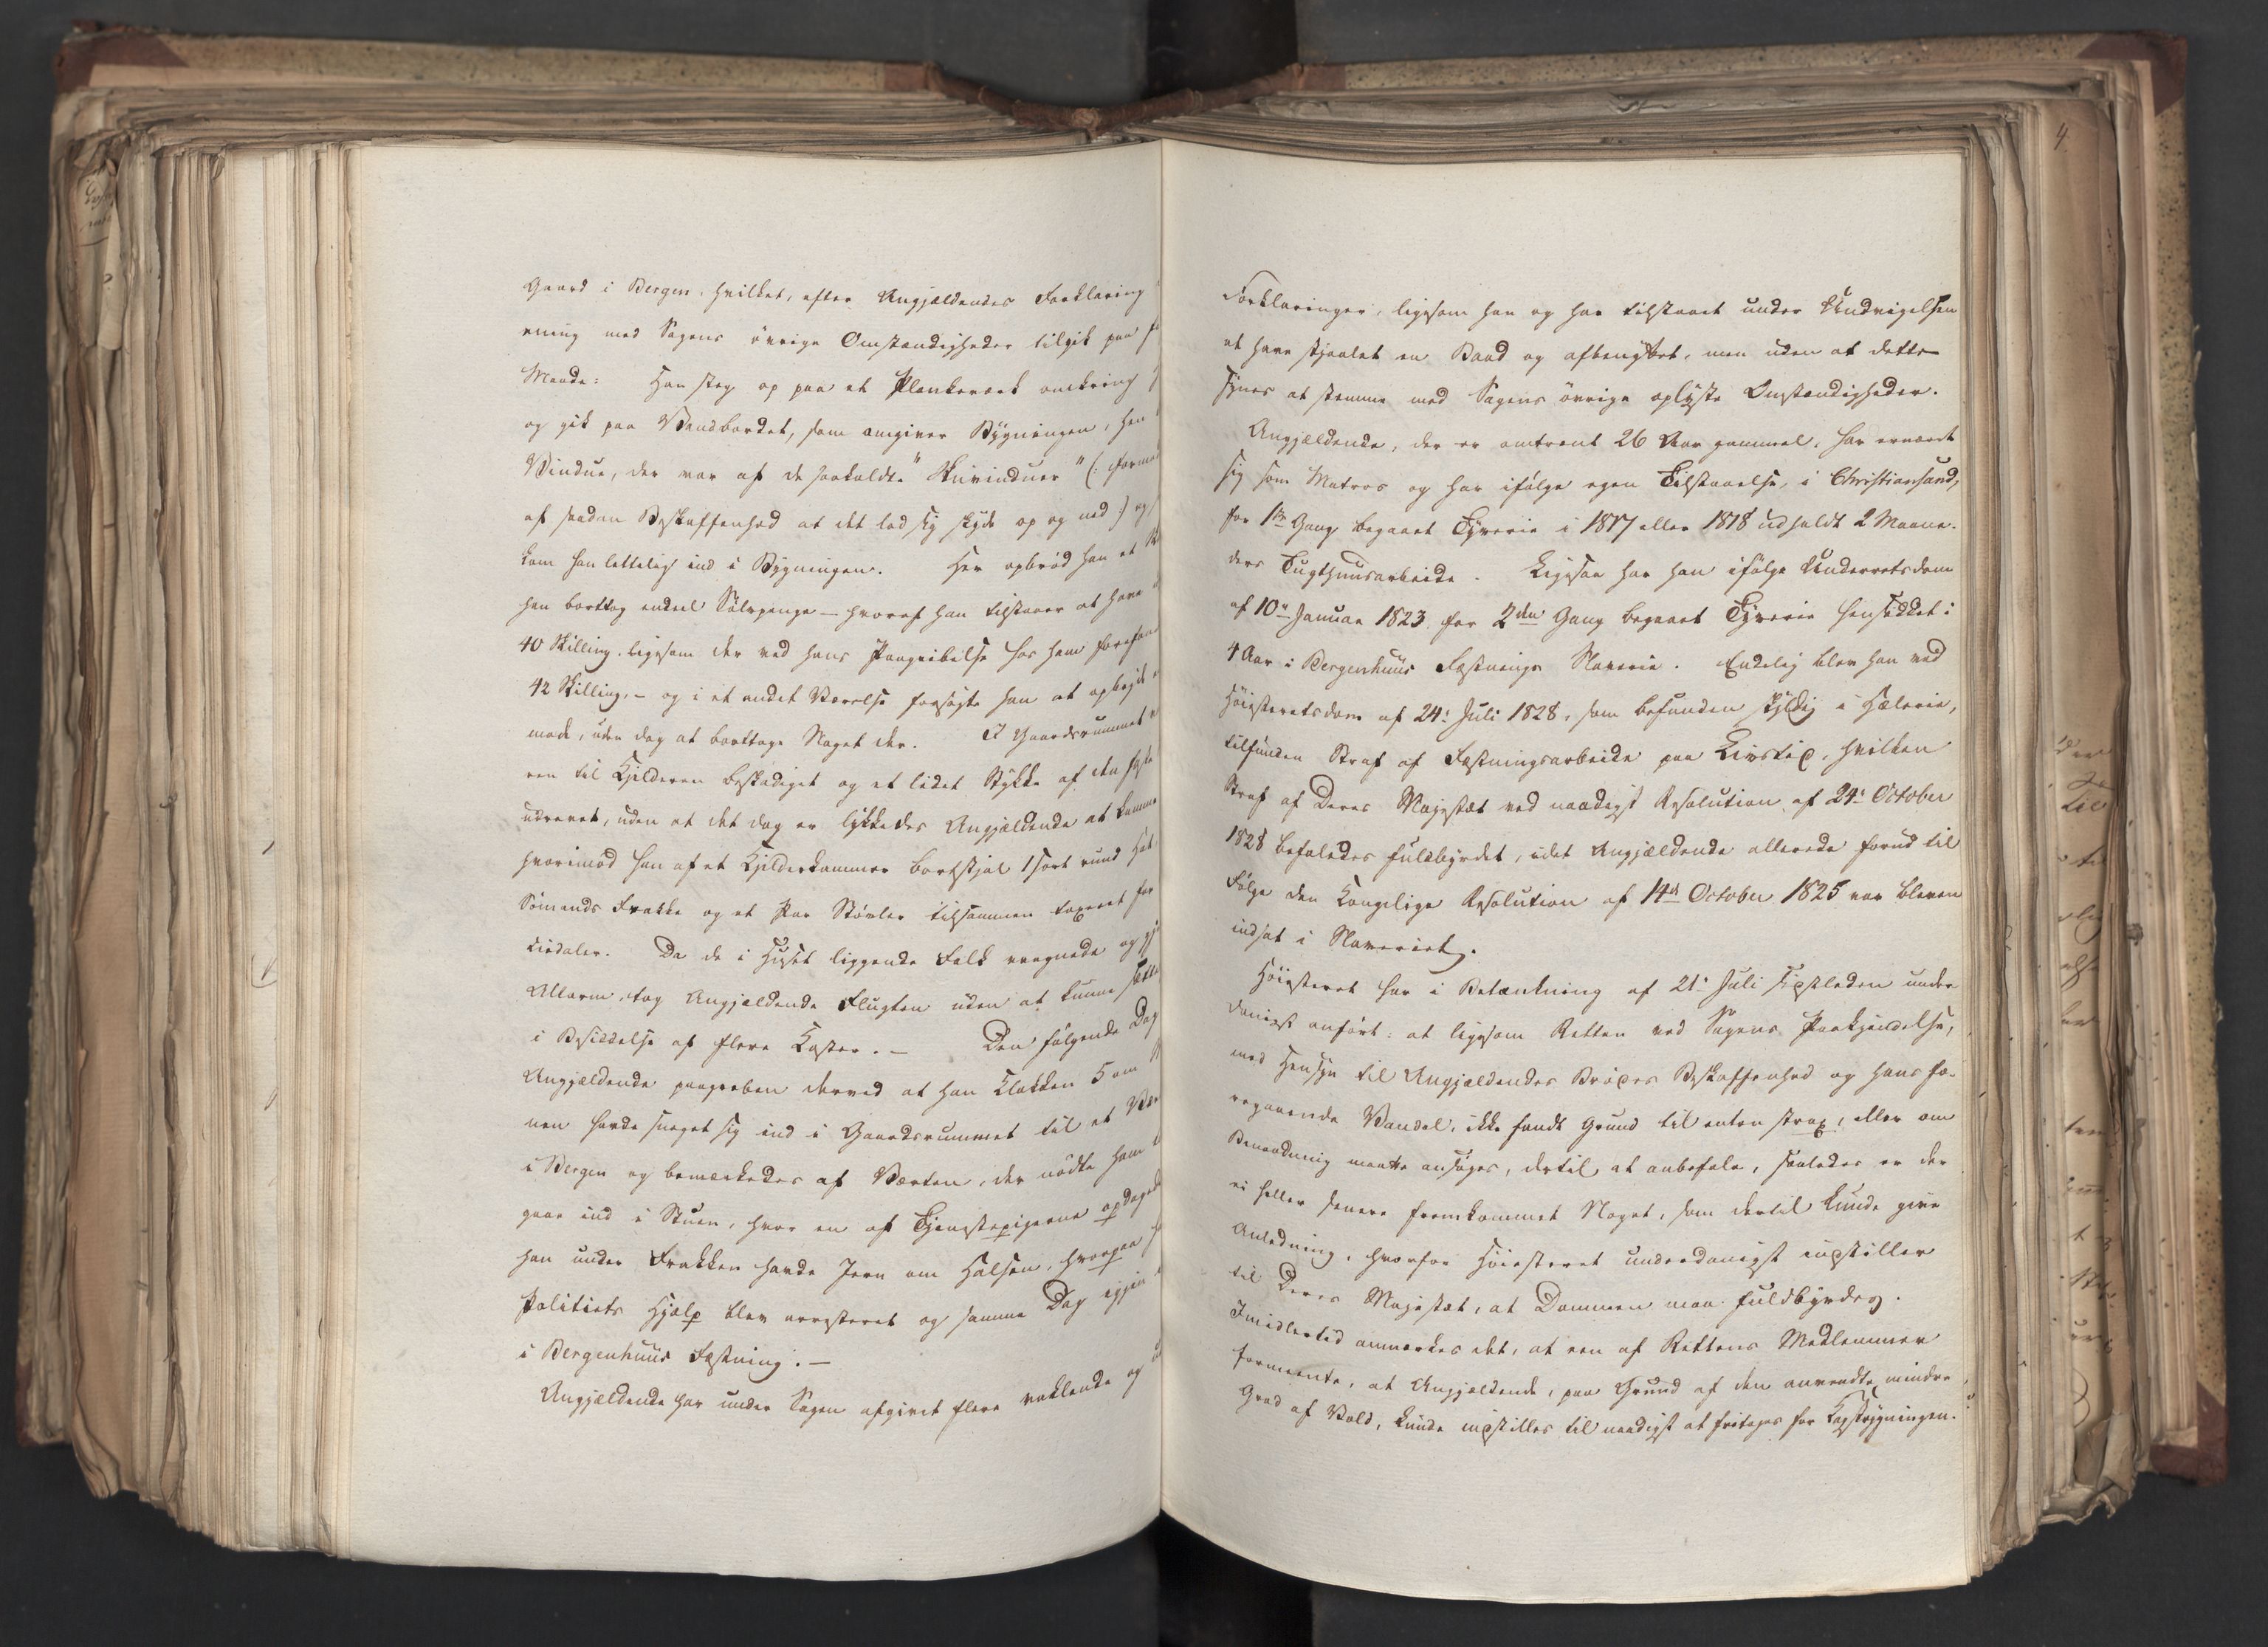 Gaard i Bergen. hvilket, efter Angjældendes Forklaring
ening med Sagens øvrige Omstændigheder tilgik paa
Maade: Han steg op paa et Plankeværk omkring
og gik paa Vandbordet, som omgiver Bygningen, hen
Vindue, der var af de saakaldte "Skuvinduer" (: formo
af saadan Beskaffenhed at det lod sig skyde op og ned :) og
kom han lettelig ind i Bygningen. Her opbrød han et
han borttog endeel Sølvpenge – hvoraf han tilstaaer at have
40 Skilling. ligesom der ved hans Paagribelse hos ham forefan
42 Skilling, – og i et andet Værelse forsøgte han at opbryde
mode, uden dog at borttage Noget der. I Gaardsrummet
ren til Kjelderen beskadiget og et lidet Stykke af den
udrevet, uden at det dog er lykkedes Angjældende at komme
hvorimod han af et Kjelderkammer bortstjal 1 sort rund Hat
Sømands Frakke og et Par Støvler tilsammen taxeret for
ciedaler. Da de i Huset liggende Folk vaagnede og gj
Allarm, tog Angjældende Flugten uden at kunne sætte
i Besiddelse af flere Koster. – Den følgende Dag
Angjældende paagreben derved at han Klokken 5 om
nen havde sneget sig ind i Gaardsrummet til et Vær
i Bergen og bemærkedes af Værten, der nødte ham
gaae ind i Stuen, hvor en af Tjenestepigerne opdagede
han under Frakken havde Jern om Halsen, hvorpaa
Politiets Hjælp blev arresteret og samme Dag igjen
i Bergenhuus Fæstning. –
Angjældende har under Sagen afgivet flere vaklende og
Forklaringer, ligesom han og har tilstaaet under Undvigelsen
at have stjaalet en Baad og afbenyttet, men uden at dette
synes at stemme med Sagens øvrige oplyste Omstændigheder.
Angjældende, der er omtrent 26 Aar gammel, har ernæret
sig som Matros og har ifølge egen Tilstaaelse, i Christiansand,
for 1ste Gang begaaet Tyverie i 1817 eller 1818 udholdt 2 Maane-
ders Tugthuusarbeide. Ligesaa har han ifølge Underretsdom
af 10de Januar 1823 for 2den Gang begaaet Tyverie hensiddet i
4 Aar i Bergenhuus Fæstnings Slaverie. Endelig blev han ved
Høiesteretsdom af 24de Juli 1828, som befunden skyldig i Hælerie,
tilfunden Straf af Fæstningsarbeide paa Livstid, hvilken
Straf af Deres Majestæt ved naadigst Resolution af 24de October
1828 befaledes fuldbyrdet, idet Angjældende allerede forud til
Følge den Kongelige Resolution af 14de October 1825 var bleven
indsat i Slaveriet.
Høiesteret har i Betænkning af 21de Juli sidstleden under-
danigst anført: at ligesom Retten ved Sagens Paakjendelse,
med Hensyn til Angjældendes Brødes Beskaffenhed og hans fo-
regaaende Vandel, ikke fandt Grund til enten strax, eller om
Benaadning maatte ansøges, dertil at anbefale, saaledes er der
ei heller senere fremkommet Noget, som dertil kunde give
Anledning, hvorfor Høiesteret underdanigst indstiller
til Deres Majestæt, at Dommen maa fuldbyrdes.
Imidlertid anmærkes det, at een af Rettens Medlemmer
formeente, at Angjældende, paa Grund af den anvendte mindre
Grad af Vold, kunde indstilles til naadigst at fritages for Kagstrygningen."